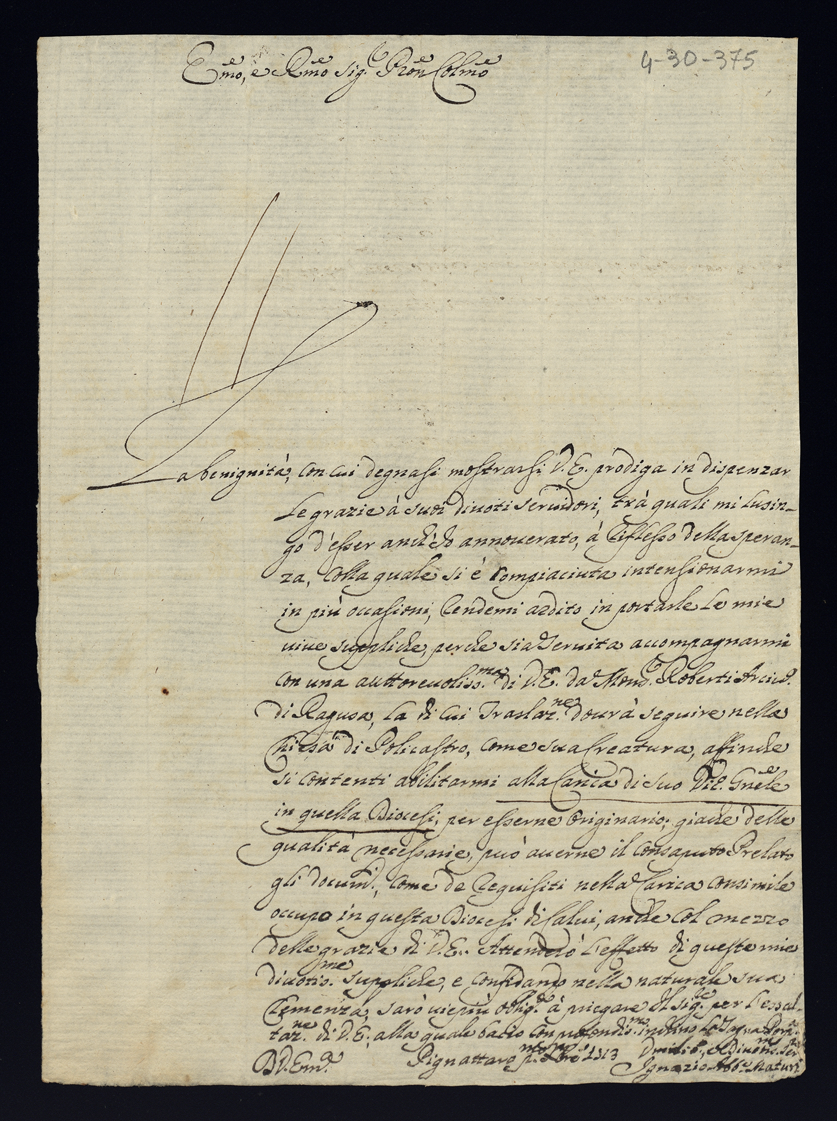 Emo, e Rmo Sig.re Pron Colmo
4-30-375
La benignità, con cui degnasi mostrarsi V.E. prodiga in dispenzar
le grazie à suoi divoti servidori, trà quali mi lusin-
go d'esser anch'io annoverato, à riflesso della speran-
za, colla quale si è compiaciuta intensionarmi
in più occasioni, rendemi ardito in portarle le mie
vive suppliche, perche sia servita accompagnarmi
con una auttorevoliss.ma di V.E. da Mons.r Roberti Arciv.
di Ragusa, la di cui Traslaz.ne dovrà seguire nella
Chiesa di Policastro, come sua Creatura, affinche
si contenti abilitarmi alla Carica di suo Vic. Gnèle
in quella Diocesi, per esserne originario; giache delle
qualità necessarie, può averne il consaputo Prelato
gli docum.ti, come de requisiti nella Carica consimile
occupo in questa Diocesi di Calvi, anche col mezzo
delle grazie di V.E. Attenderò l'effetto di queste mie
divotis.me suppliche, e confidando nella naturale sua
Clemenza, sarò viepiù oblig.do à priegare il Sig.re per l'esal-
taz.ne di V.E., alla quale bacio con profondis.mo inchino la Sagra Porp.a
D V. Em.a Pignattaro 1713 Ignazio Abb.e Naturi